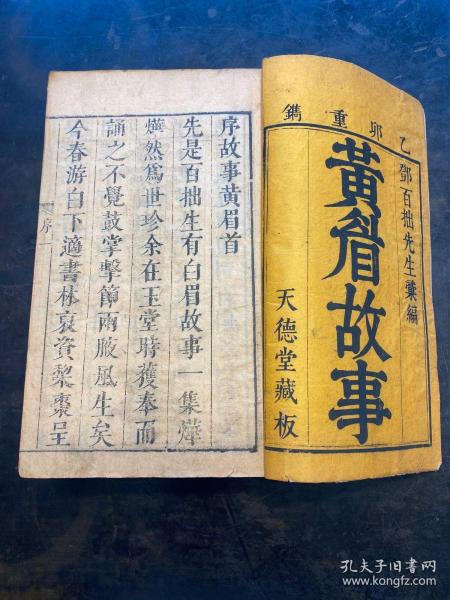 乙卯重鐫
鄧百拙先生彙編
黃眉故事
天德堂藏板
序故事黃眉首
先是百拙生有白眉故事一集燁
燁然爲世珍余在玉堂時獲奉而
誦之不覺鼓掌擊節兩腋風生矣
今春游白下適書林裒資棃棗呈
序
一
孔夫子旧书网
www.kongfz.com